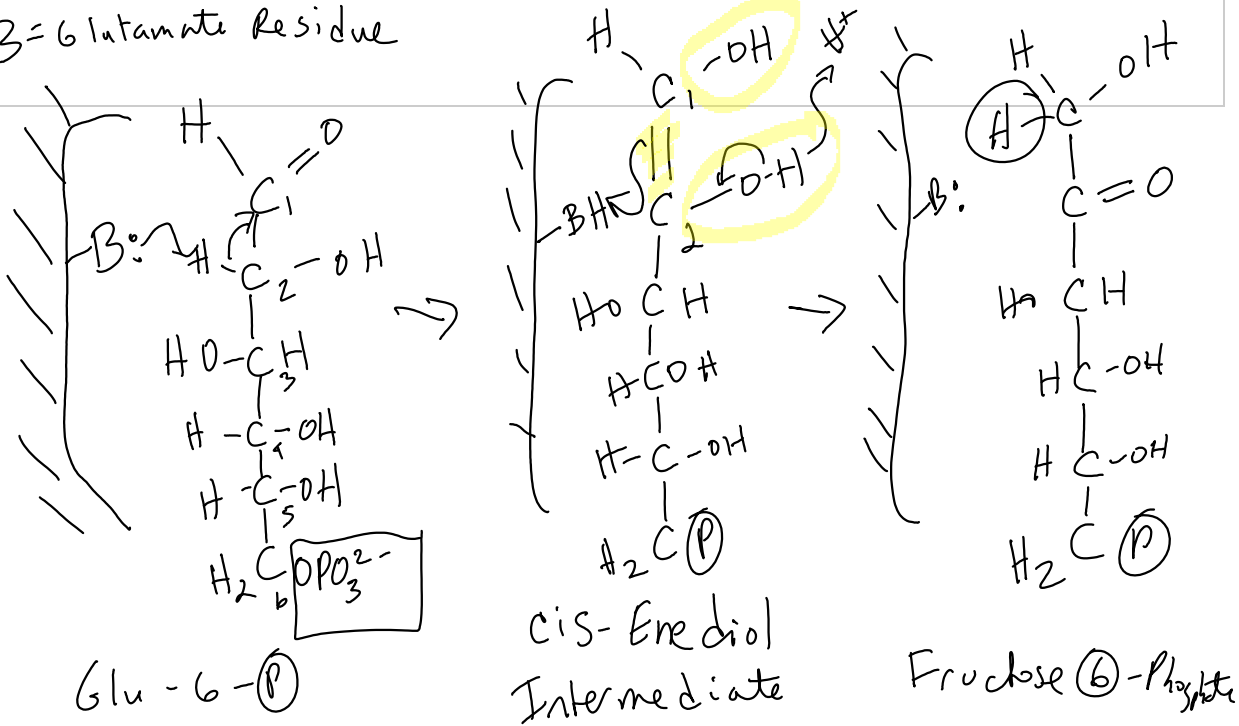 B = Glutamate Residue
H
O
C1
B:
H
C2
-OH
HO-C3 H
H-C4-OH
H-C5-OH
H2 C6 OPO3 2-
Glu-6-P
H
-OH
H+
C1
BH
C2
O-H
HO C H
H-C OH
H-C-OH
H2 C P
Cis-Enediol
Intermediate
H
OH
H
C
B:
C=O
HO C H
H C-OH
H C-OH
H2 C P
Fructose 6-Phosphate